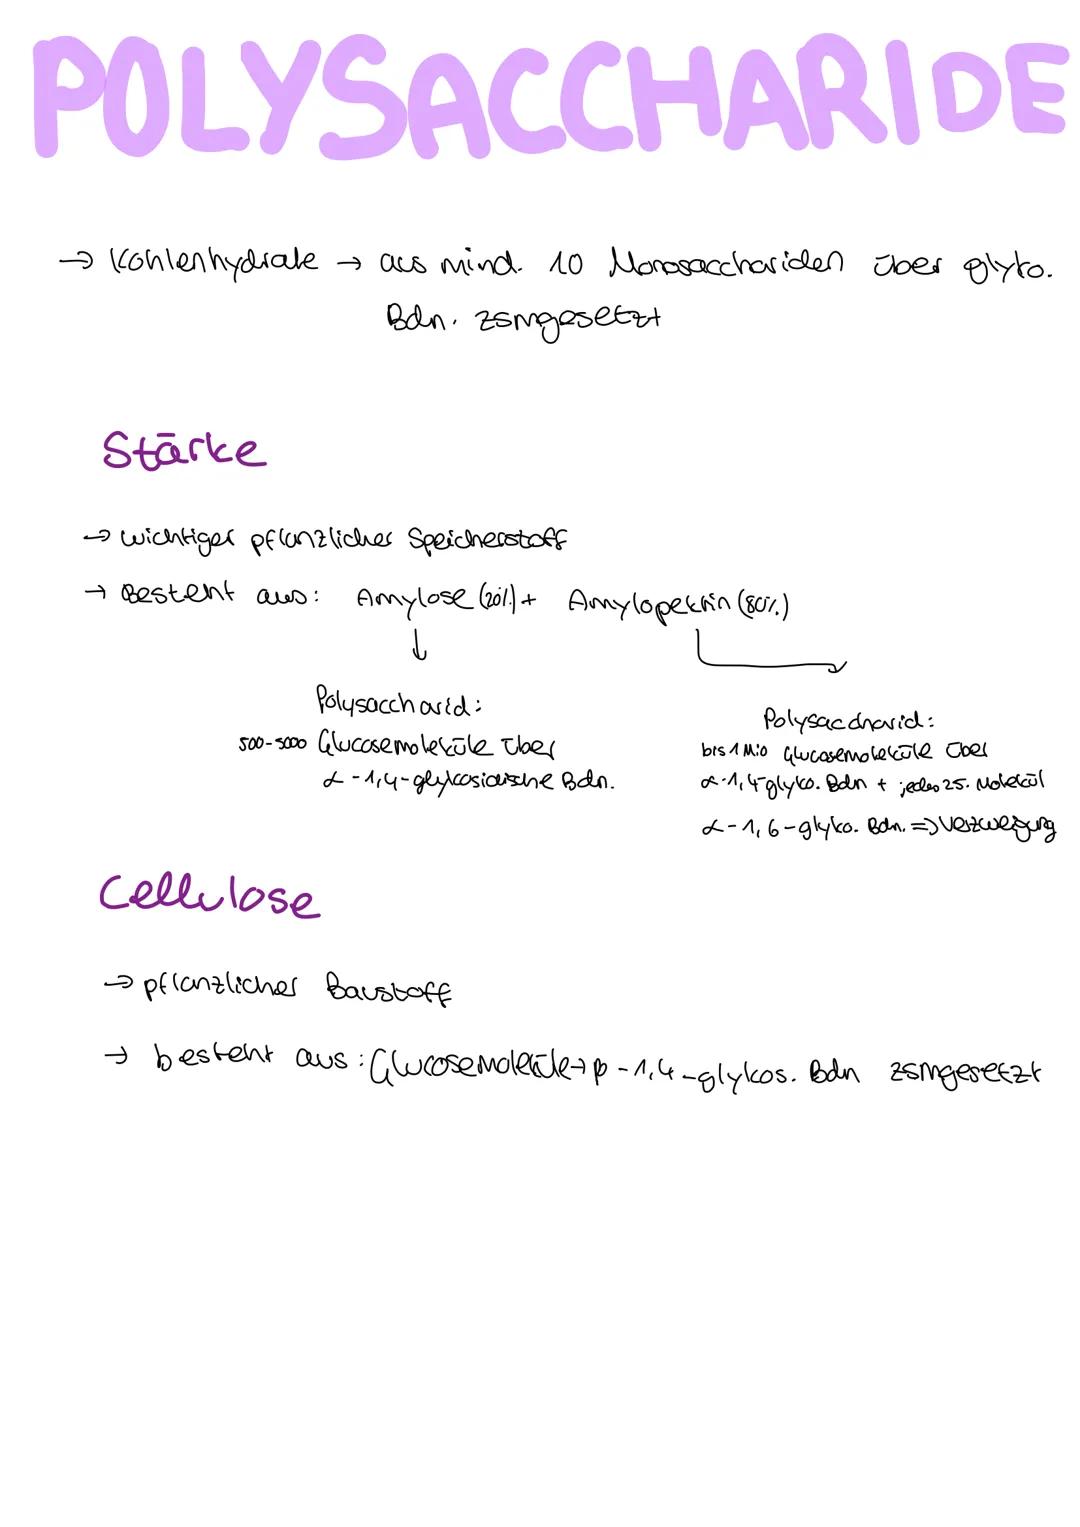 POLYSACCHARIDE
→ Kohlenhydrate → aus mind. 10 Monosacchariden über glyko.
Bdn. zsmgesetzt
Stärke
→ wichtiger pflanzlicher Speicherstoff
→ Besteht aus: Amylose (20%) + Amylopektin (80%)
↓
Polysaccharid:
500-5000 Glucosemoleküle über
α-1,4-glykosidische Bdn.
Polysaccharid:
bis 1 Mio Glucosemoleküle über
α-1,4-glyko. Bdn + jedes 25. Molekül
α-1,6-glyko. Bdn. => Verzweigung
Cellulose
→ pflanzlicher Baustoff
→ besteht aus: Glucosemoleküle → β-1,4-glykos. Bdn zsmgesetzt